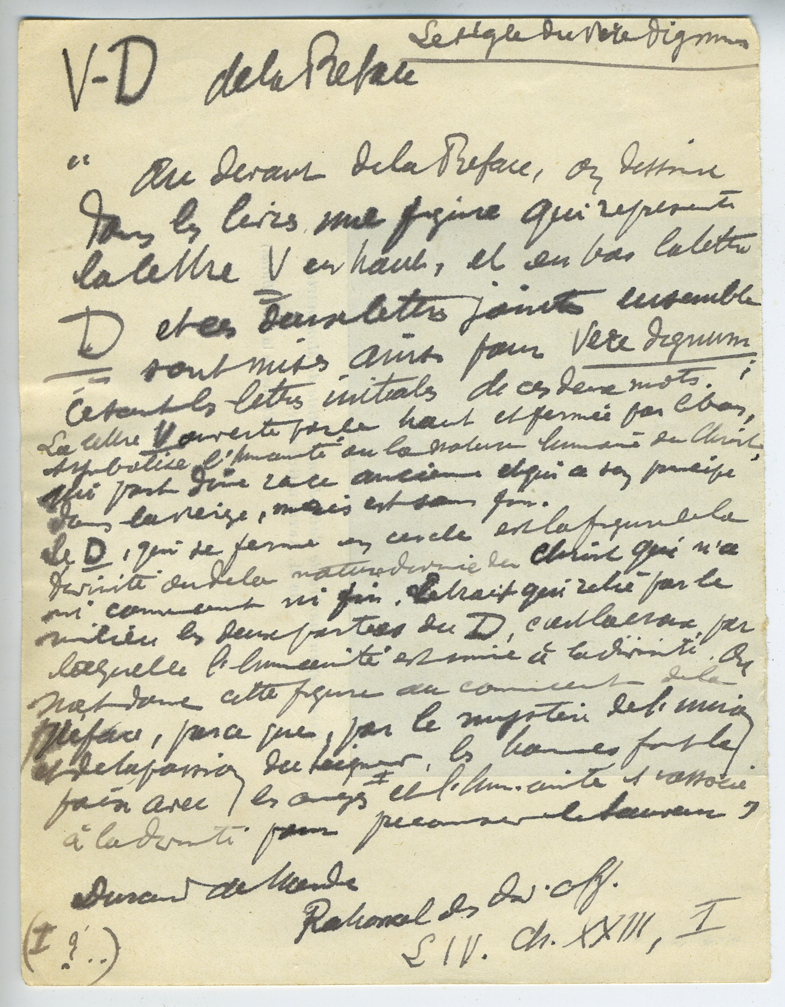 Le sigle du Vere Dignum
V-D de la Préface
" Au devant de la Préface, on dessine
dans les livres une figure qui représente
la lettre V en haut, et en bas la lettre
D et ces deux lettres jointes ensemble
sont mises ainsi pour Vere dignum ;
ce sont les lettres initiales de ces deux mots.
La lettre V ouverte par le haut et fermée par le bas,
symbolise l'humanité ou la nature humaine du Christ,
qui part d'une race ancienne et qui a son principe
dans la vierge, mais est sans fin.
Le D, qui se ferme en cercle est la figure de la
divinité ou de la nature divine du Christ qui n'a
ni commencement ni fin. Le trait qui relie par le
milieu les deux parties du D, c'est la croix par
laquelle l'humanité est unie à la divinité. On
met donc cette figure au commencement de la
préface, parce que, par le mystère de l'union
et de la passion du Seigneur, les hommes font la
paix avec les anges et l'humanité s'associe
à la divinité pour le Sauveur "
Durand de Mende
Rational des div. off.
L IV. Ch. XXIII, I
(I ?..)